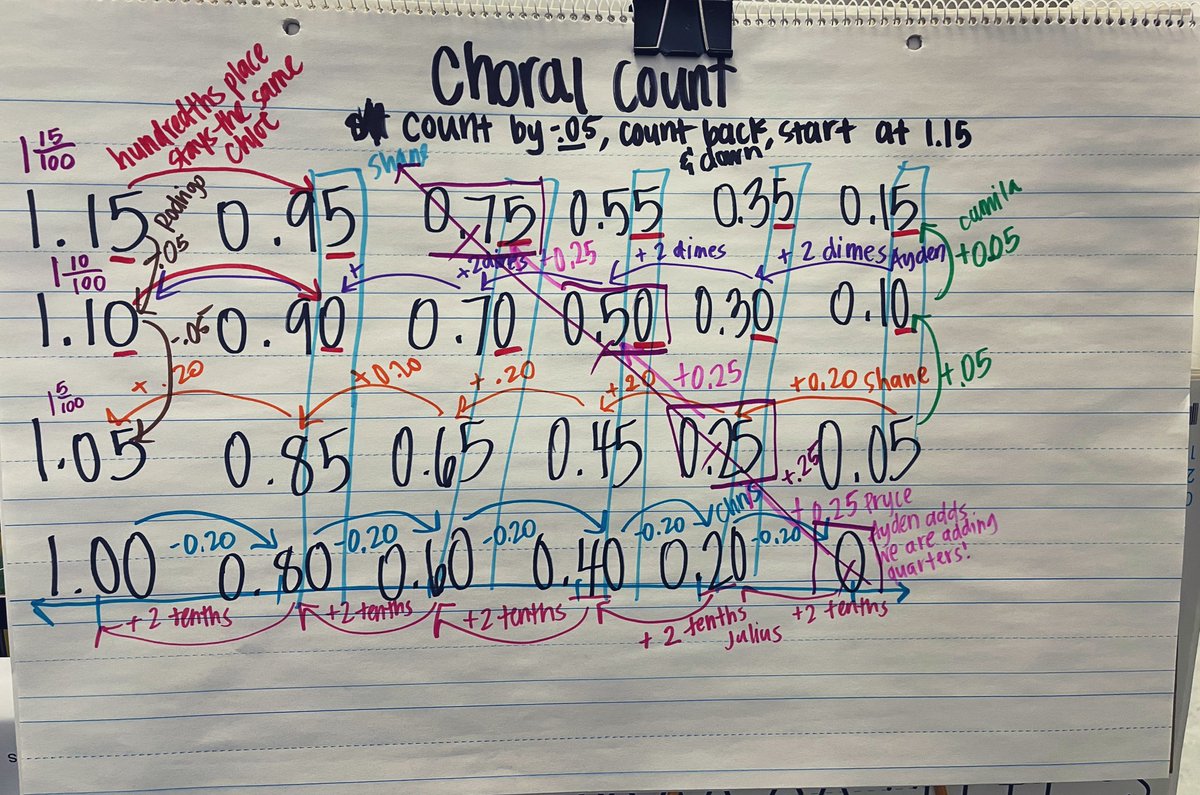 Choral Count
count by -.05, count back, start at 1.15
& down
1 15/100
hundredths place
stays the same
Chloe
shane
1.15 0.95 0.75 0.55 0.35 0.15
Rodrigo
-.05
camila
+0.05
1 10/100
+
+2 dimes
+0.25
+ 2 dimes
+ 2 dimes Ayden
1.10 0.90 0.70 0.50 0.30 0.10
-.05
1 5/100
+ .20
+0.20
+ .20
+.20
+0.25
+0.20 shane
+.05
1.05 0.85 0.65 0.45 0.25 0.05
+.25
chris
+0.25 Pryce
Ayden adds
we are adding
quarters!
-0.20 -0.20 -0.20 -0.20 -0.20
1.00 0.80 0.60 0.40 0.20 0
+ 2 tenths +2 tenths +2 tenths + 2 tenths +2 tenths
Julius